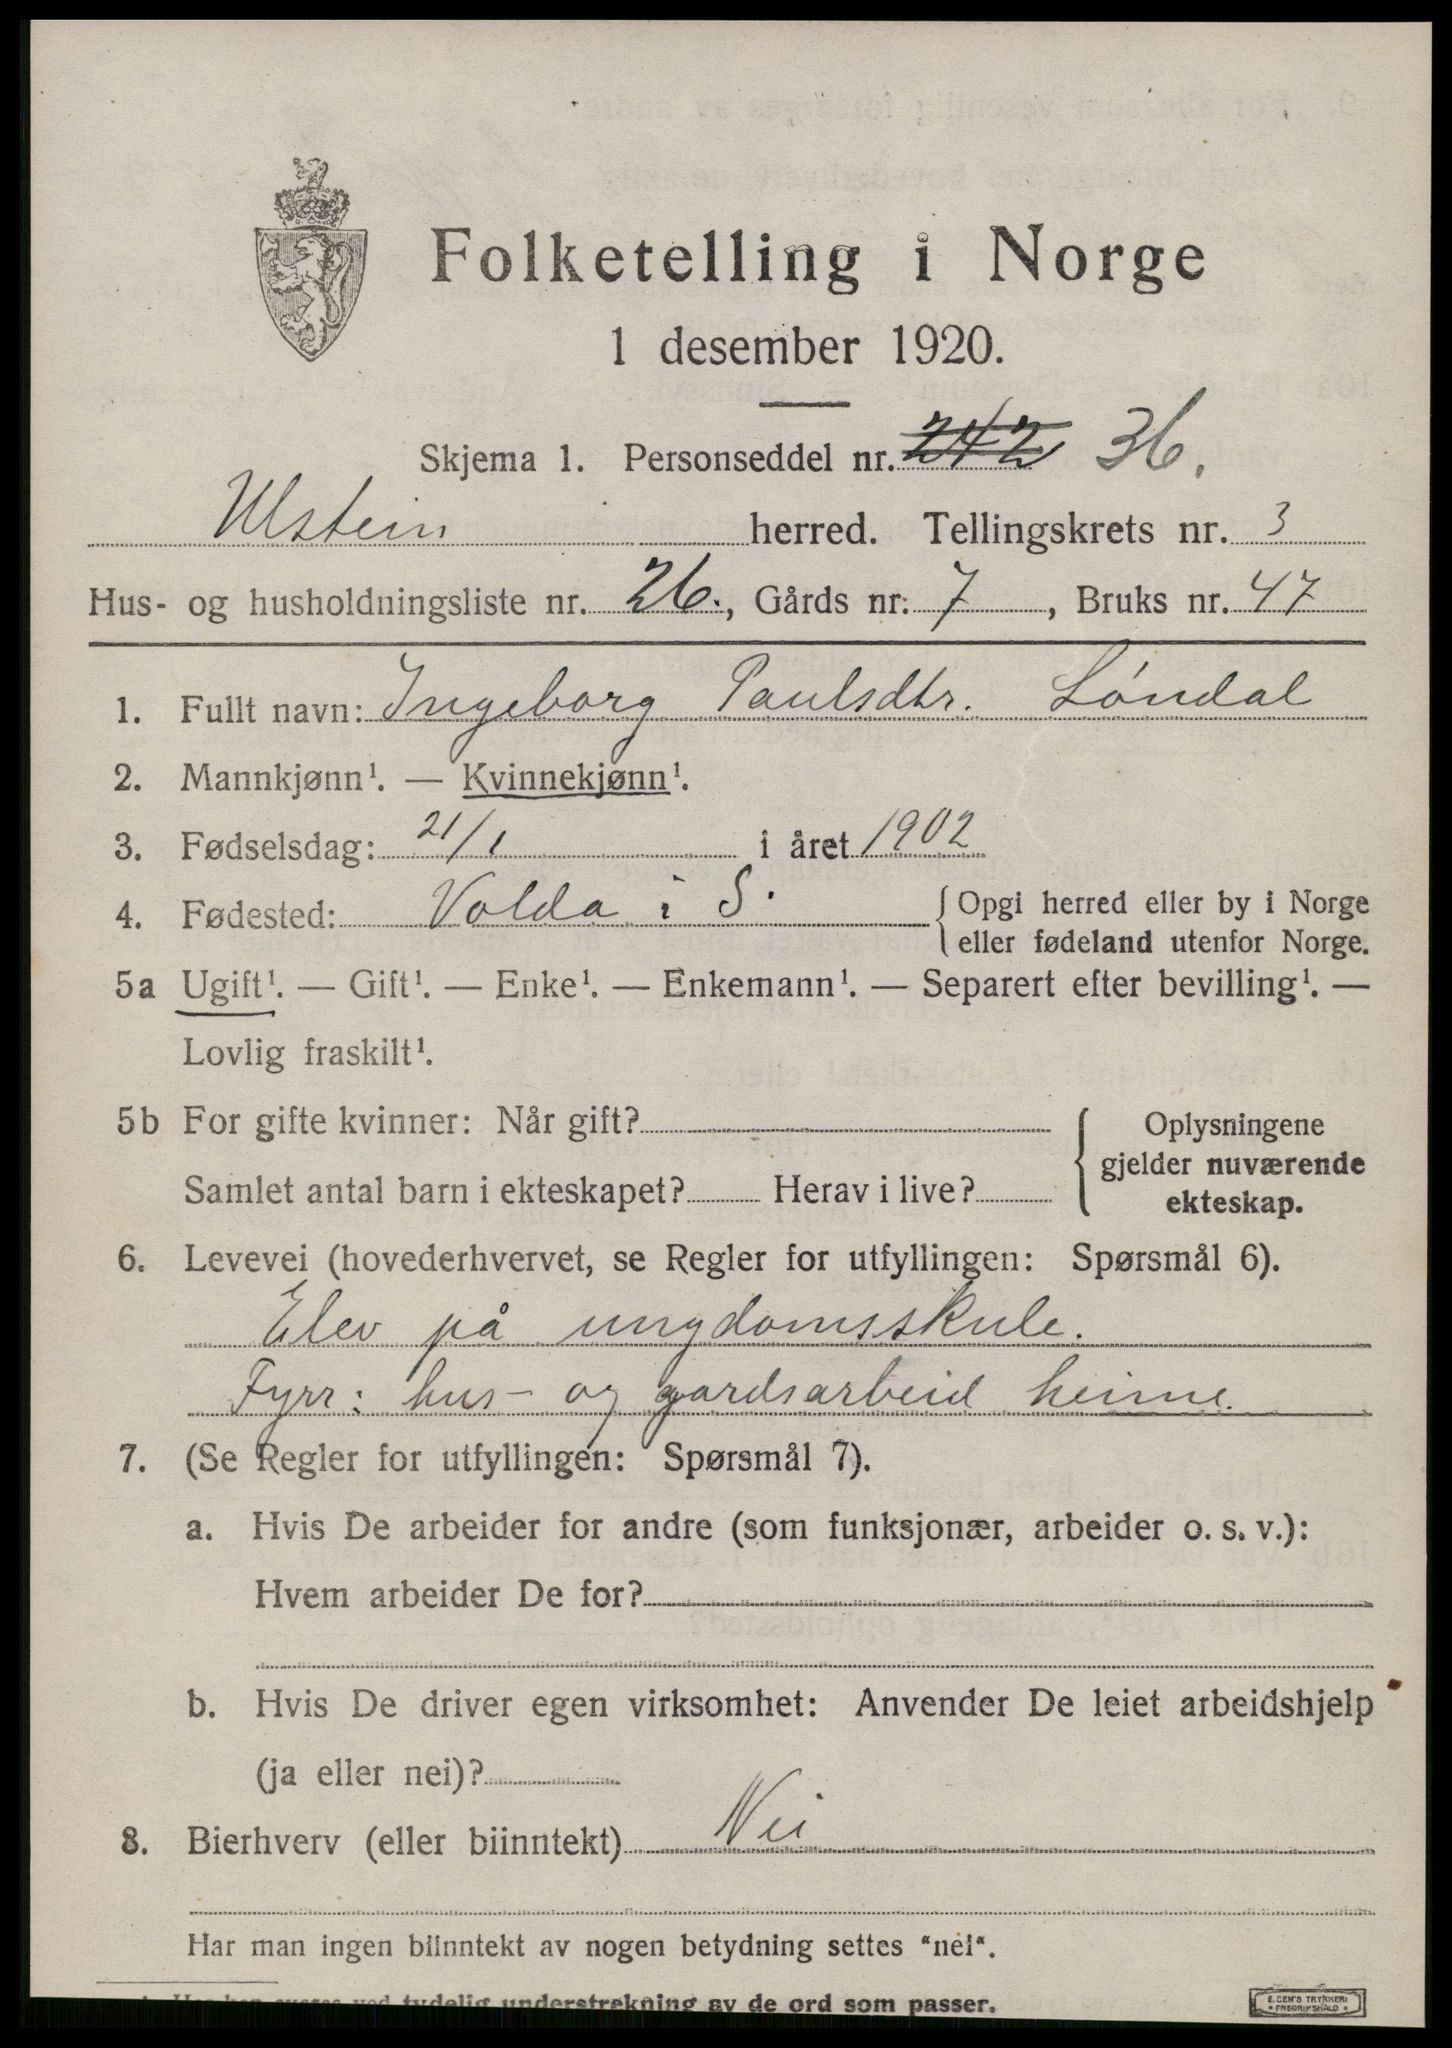 Folketelling i Norge
1 desember 1920.
Skjema 1. Personseddel nr. 242 36.
Ulstein herred. Tellingskrets nr. 3
Hus- og husholdningsliste nr. 26., Gårds nr. 7, Bruks nr. 47
1. Fullt navn: Ingeborg Paulsdtr. Løndal
2. Mannkjønn¹. — Kvinnekjønn¹.
3. Fødselsdag: 21/1 i året 1902
4. Fødested: Volda i S. { Opgi herred eller by i Norge
eller fødeland utenfor Norge.
5a Ugift¹. — Gift¹. — Enke¹. — Enkemann¹. — Separert efter bevilling¹. —
Lovlig fraskilt¹.
5b For gifte kvinner: Når gift? { Oplysningene
gjelder nuværende
Samlet antal barn i ekteskapet? Herav i live?
ekteskap.
6. Levevei (hovederhvervet, se Regler for utfyllingen: Spørsmål 6).
Elev på ungdomsskule.
Fyrr: hus- og gardsarbeid heime.
7. (Se Regler for utfyllingen: Spørsmål 7).
a. Hvis De arbeider for andre (som funksjonær, arbeider o. s. v.):
Hvem arbeider De for?
b. Hvis De driver egen virksomhet: Anvender De leiet arbeidshjelp
(ja eller nei)?
8. Bierhverv (eller biinntekt) Nei
Har man ingen biinntekt av nogen betydning settes "nei".
ved tydelig understrekning av de ord som passer.
E. SEM'S TRYKKERI
FREDRIKSHALD